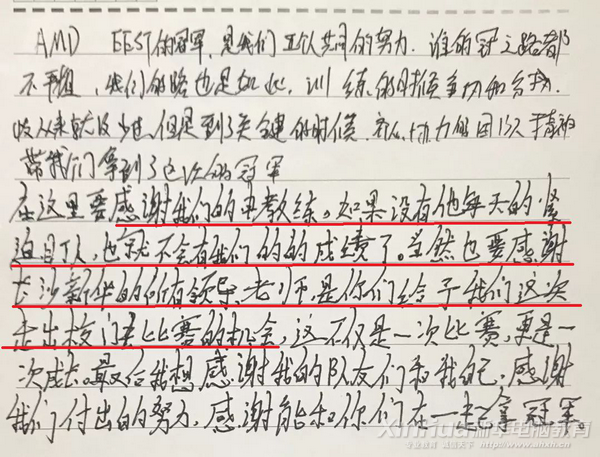 AMD EEST的冠军,是我们五个人共同的努力.谁的冠之路都
不平坦,我们的路也是如此,训练的时候争切的
从来就没少过,但是到了关健的时候,协力的团队精神
带我们拿到了这次的冠军
在这里要感谢我们的教练。如果没有他每天的
迫盯人,也就不会有我们的的成绩了。当然也要感谢
长沙新华的所有领导,老师是你们给予我们这次
走出校门去比赛的机会,这不仅是一次比赛,更是一
次成长。最后我想感谢我的队友们和我自己,感谢
我们付出的努力,感谢能和你们在一起拿冠军。
XinHua 新华电脑教育
专业教育 诚信天下 www.xinhua.com